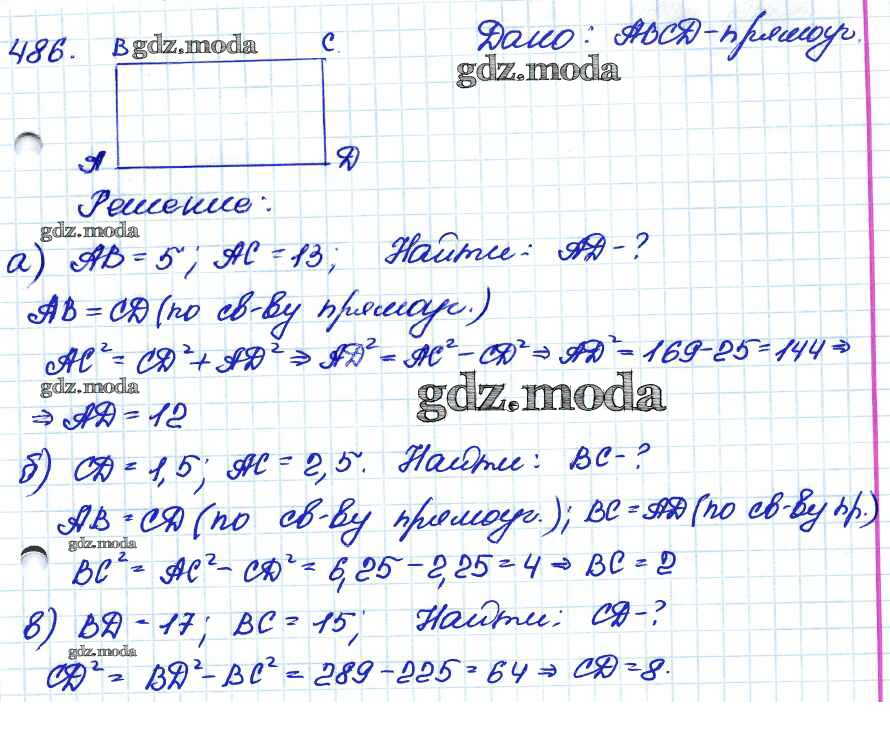 486. B gdz.moda C. Дано: ABCD-прямоуг.
gdz.moda
A D
Решение:
gdz.moda
а) AB = 5; AC = 13; Найти: AD - ?
AB = CD (по св-ву прямоуг.)
AC² = CD² + AD² ⇒ AD² = AC² - CD² ⇒ AD² = 169 - 25 = 144 ⇒
gdz.moda gdz.moda
⇒ AD = 12
б) CD = 1,5; AC = 2,5. Найти: BC - ?
AB = CD (по св-ву прямоуг.); BC = AD (по св-ву пр.)
gdz.moda
BC² = AC² - CD² = 6,25 - 2,25 = 4 ⇒ BC = 2
в) BD - 17; BC = 15; Найти: CD - ?
gdz.moda
CD² = BD² - BC² = 289 - 225 = 64 ⇒ CD = 8.